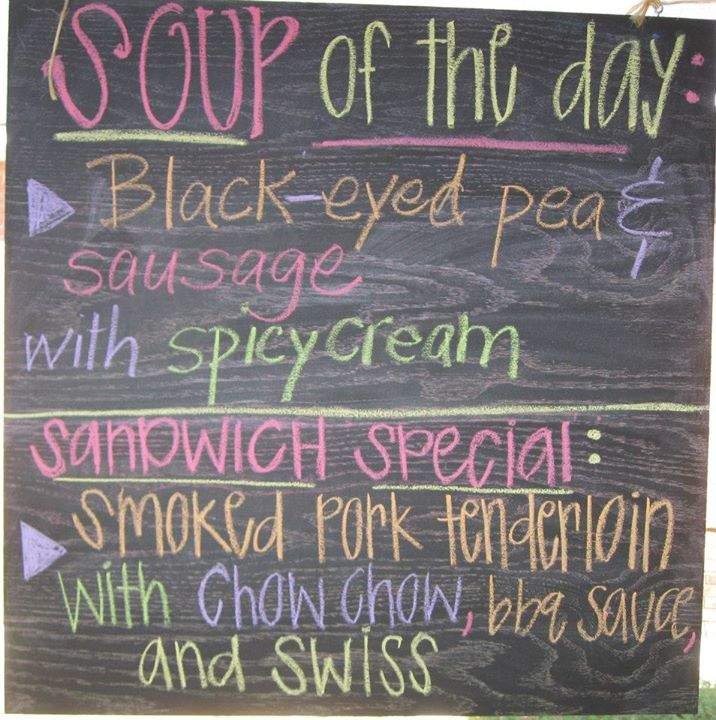 SOUP of the day:
Black-eyed pea &
sausage
with spicy cream
SANDWICH special:
smoked pork tenderloin
with chow chow, bbq sauce,
and swiss